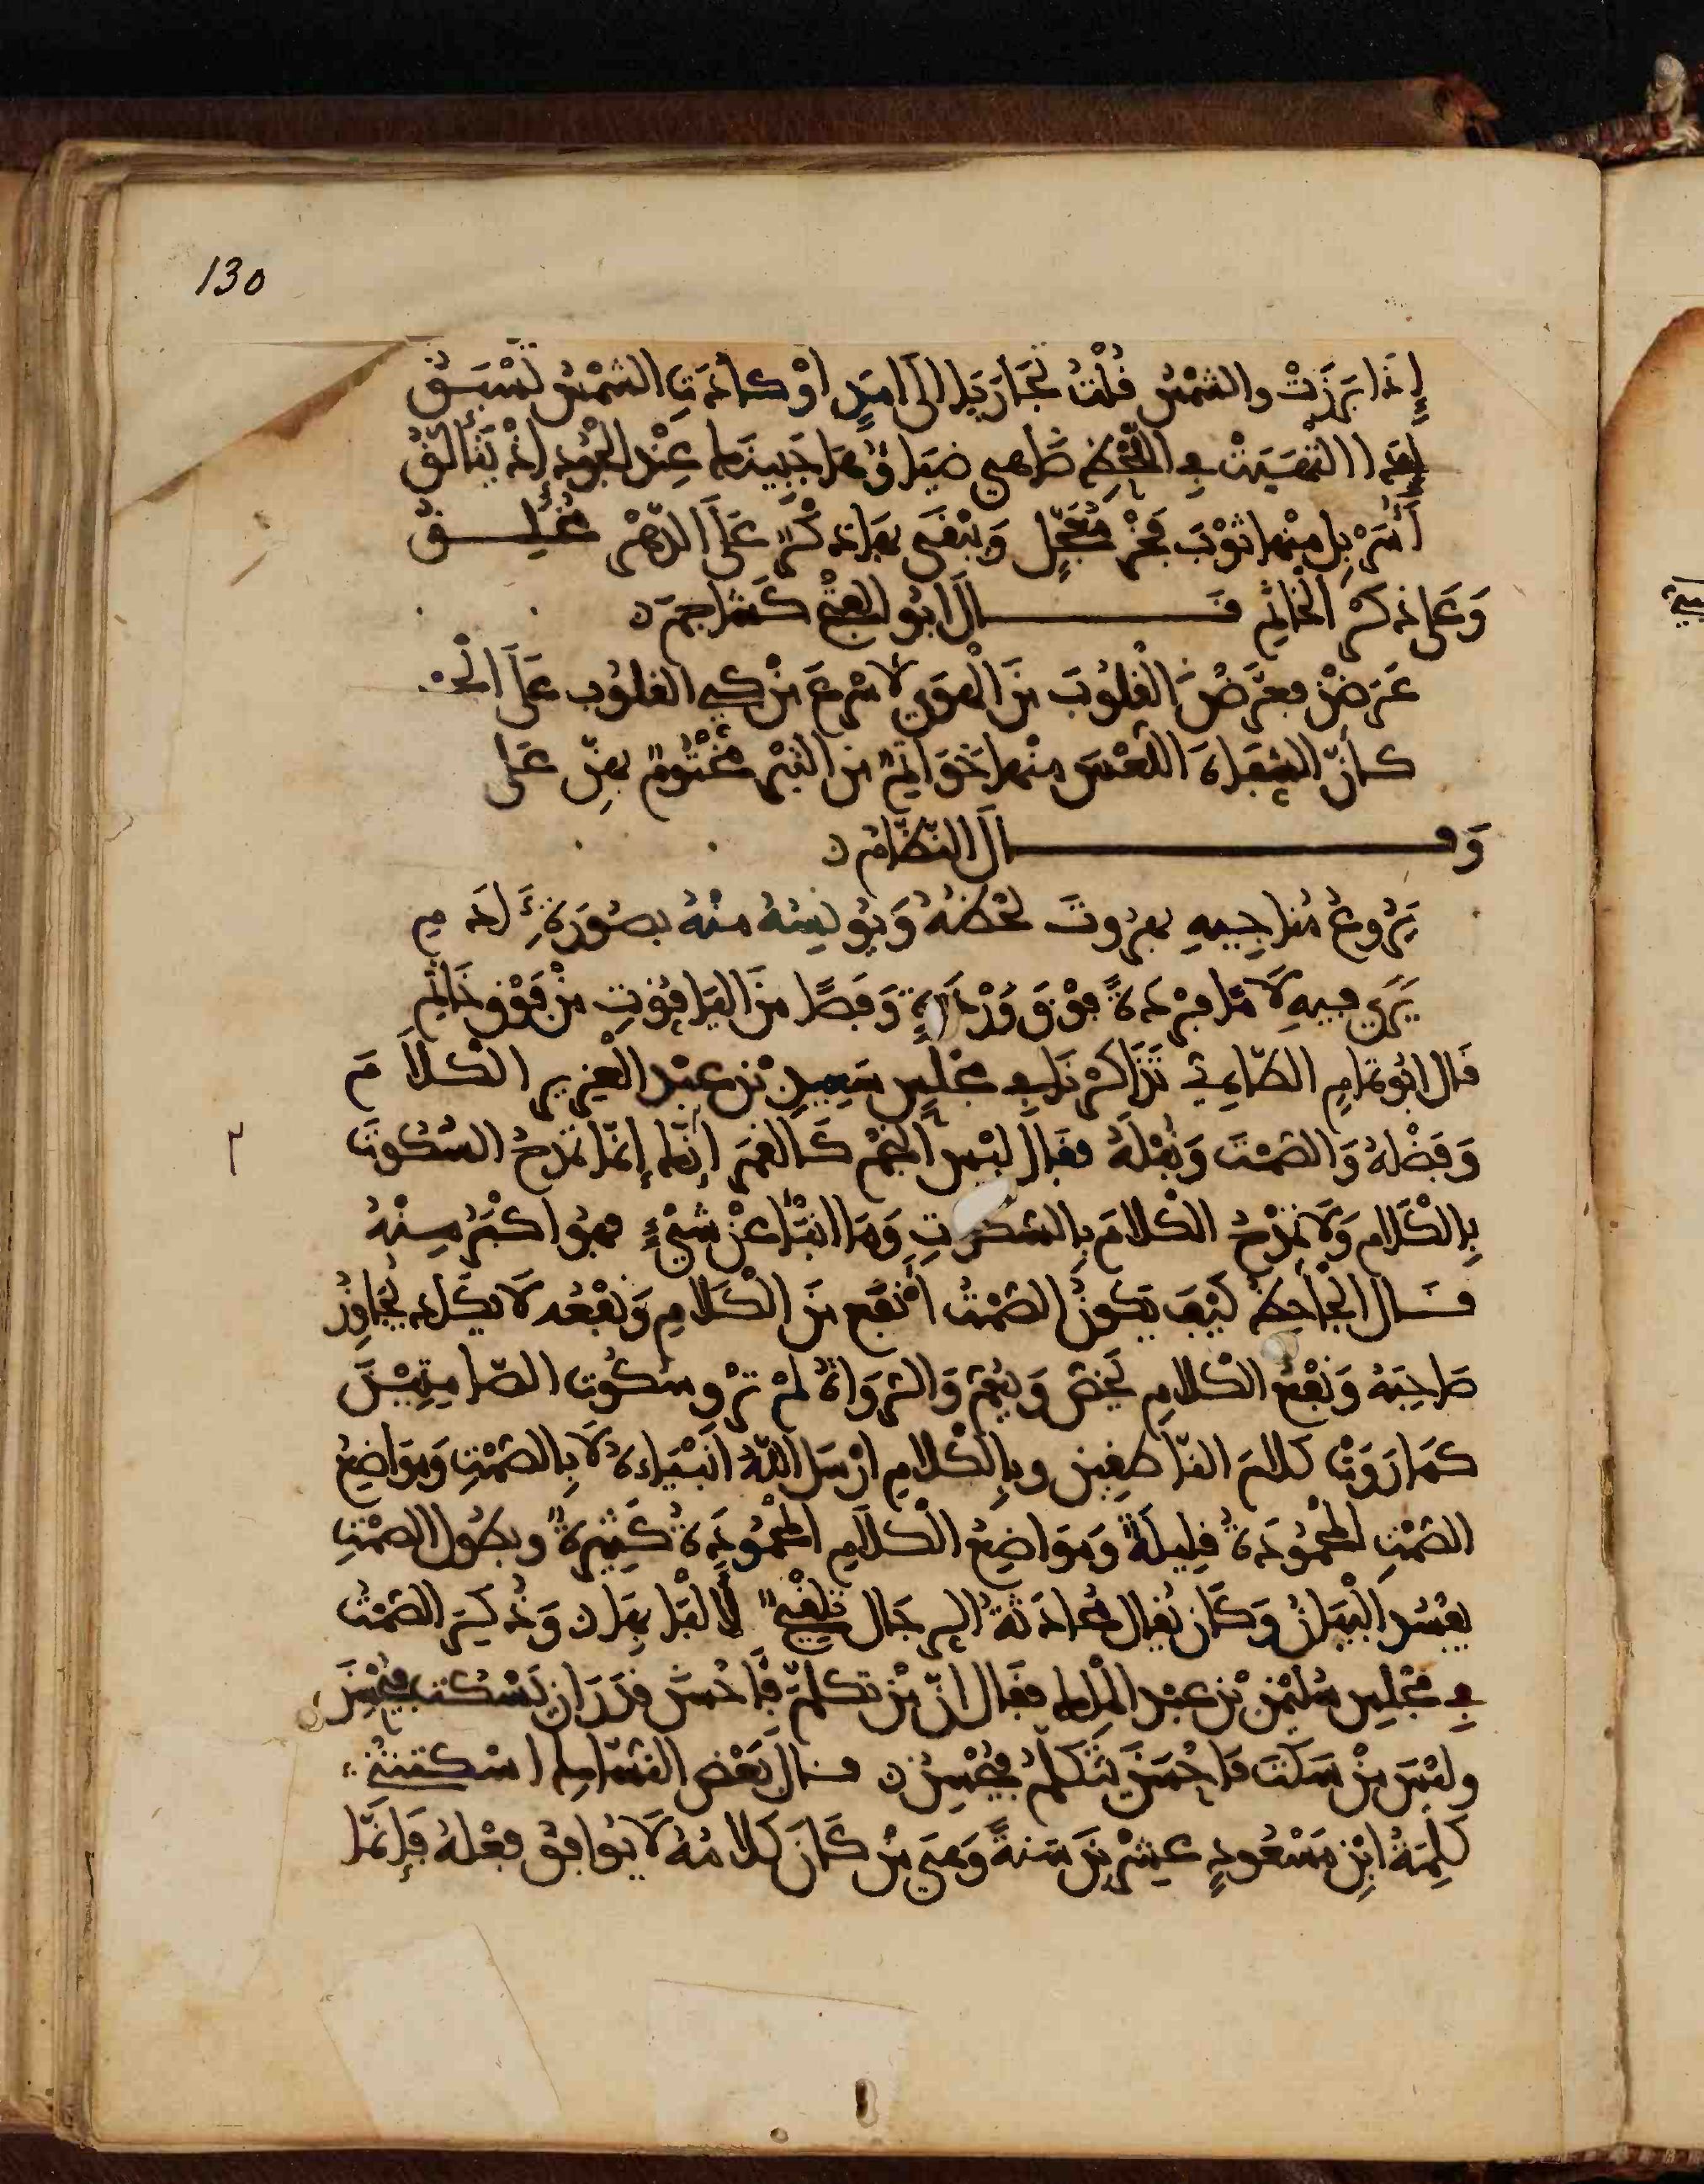 130
إِذَا بَرَزَتْ والشمْسُ قُلْتُ تجَارَيَا إلَى امَدٍ اوْ كادَتِ الشمْسُ تُسْبَقُ
أُسَرْبِل منْها ثوْبَ فخْرٍ مُعَجّلٍ وَيَبْقَى بهَا ذكْرٌ عَلَى الدّهْرِ
وَعَلى ذكْرِ الخَاتِمِ قَال ابُو الفتْحِ كُشَاجِم
عَرَضْن فعَرّضْنَ القلُوبَ منَ الْهوَى لاسْرَعَ منْ كيِ القلُوب عَلَى الْجمْـ
كأنّ الشفَاهَ اللُّعْسَ منْها خَوَاتِمٌ من التبْرِ مخْتُومٌ بهِنّ عَلى
وَقَالَ النّظّامُ
يَرُوعُ مُنَاجِيهِ بهرُوتَ لحْظهُ وَيُونِسُهُ منْهُ بصُورَةِ ءَادَمِ
يَرَى فيهِ لَامًا فرْدةً فوْقَ وَرْدَةٍ وَفَصًّا منَ اليَاقُوتِ منْ فَوْقِ خَاتَمِ
قَال ابُو تمَامٍ الطّاءِي تَذَاكرْنَا فِي مجْلِسِ سَعِيدِ بْن عبْد الْعزِيزِ الْكلاَمَ
وَفَضْلهُ وَالصّمْتَ وَنُبْلَهُ فقَال ليْسَ النجْمُ كَالقمَرِ إنّكَ إنّمَا تمْدَحُ السُّكُوتَ
بِالْكَلَامِ وَلَا تمْدَحُ الْكلامَ بِالسّكُوتِ وَمَا انْبَأَ عنْ شيْءٍ فهُوَ اكْبَرُ منْهُ
قَال الجْاحِظُ كَيْفَ يَكونُ الصّمْتُ أَنْفَع منَ الْكَلَامِ وَنفْعُه لَا يكَاد يجَاوِزُ
صَاحِبَهُ وَنفْعُ الْكلامِ يخُصّ وَيَعُمّ وَالرّوَاةُ لمْ ترْوِ سكُوتَ الصّامِتِينَ
كمَا رَوَتْ كَلامَ النّاطقِينَ وبِالْكلامِ ارْسَل اللّهُ انْبِيَاءهُ لَا بِالصّمْتِ وَموَاضِعُ
الصّمْتِ المحْمُودَةُ قلِيلَةٌ وَمَوَاضِعُ الْكلَامِ المحْمُودَةُ كَثِيرَةٌ وبطُول الصّمْتِ
يفْسُد الْبَيَانُ وَكَانَ يُقَال مُحَادَثَةُ الرجَال تلْقِيحٌ لِالْبَابهَا وَذُكِرَ الصّمْتُ
فِي مجْلِسِ سُليْمن بْن عبْد الْملِك فقَال انّ منْ تكلّمَ فَأحْسَنَ قدَرَ ان يَسْكُت فيُحْسِنَ
وليْسَ منْ سَكَتَ فَاحْسَنَ يَتَكَلّمُ فيُحْسِنُ قَال بَعْض النسّاكِ اسْكَتتْنِي
كَلِمَةُ ابْن مَسْعُودٍ عشْرِينَ سَنَةً وَهيَ منْ كَانَ كَلامُهُ لَا يُوَافِقُ فعْلهُ فَإنّمَا